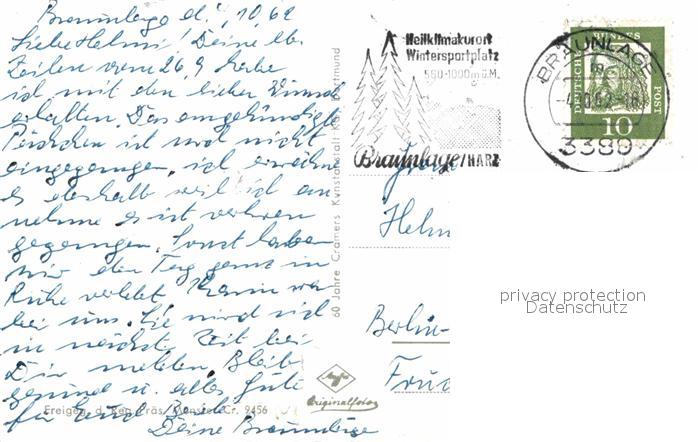 Braunlage d. 1, 10, 62
Liebe Helmi! Deine lb.
Zeilen vom 26,9 habe
ich mit den lieben Wünsch
erhalten. Das angekündigte
Päckchen ist noch nicht
eingegangen, ich erwähne
es deshalb weil ich an
nehme es ist verloren
gegangen. Sonst haben
wir den Tag ganz in
Ruhe verlebt. Karin war
bei uns. Sie wird sich
in nächster Zeit bei
Dir melden. Bleib
gesund u. alles Gute
für Euch Beide
Deine Braunlage
Freigeg. d. Reg. Präs. Münster Cr. 9456
60 Jahre Cramers Kunstanstalt KG, Dortmund
Heilklimakurort
Wintersportplatz
560-1000m ü.M.
Braunlage/HARZ
BRAUNLAGE
3389
DEUTSCHE BUNDESPOST
10
Helm
Berlin-
Agfa
Originalfoto
privacy protection
Datenschutz